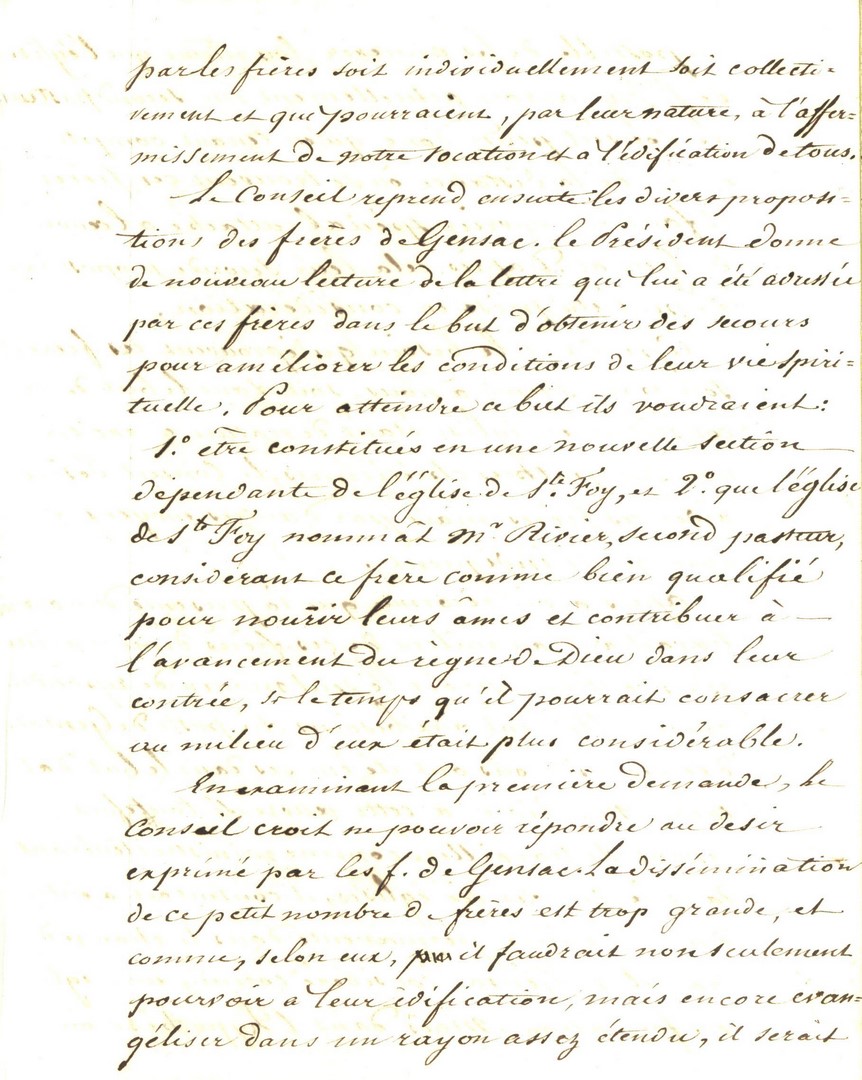 par les frères soit individuellement soit collecti-
vement et qui pourraient, par leur nature, à l'affer=
missement de notre vocation et à l'édification de tous.
Le Conseil reprend ensuite les divers proposi=
tions des frères de Gensac. le Président donne
de nouveau lecture de la lettre qui lui a été adressée
par ces frères dans le but d'obtenir des secours
pour améliorer les conditions de leur vie spiri=
tuelle. Pour atteindre ce but ils voudraient:
1.° être constitués en une nouvelle section
dépendante de l'église de Ste. Foy, et 2.° que l'église
de Ste Foy nommât Mr Rivier, second pasteur,
considerant ce frère comme bien qualifié
pour nourrir leurs âmes et contribuer à
l'avancement du règne de Dieu dans leur
contrée, si le temps qu'il pourrait consacrer
au milieu d'eux était plus considérable.
En examinant la première demande, le
Conseil croit ne pouvoir répondre au desir
exprimé par les f. de Gensac. La dissémination
de ce petit nombre de frères est trop grande, et
comme, selon eux, il faudrait non seulement
pourvoir a leur édification, mais encore evan=
géliser dans un rayon assez étendu, il serait